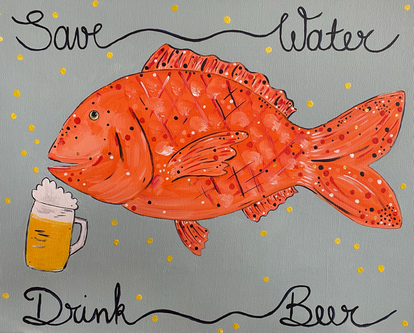 Save Water
Drink Beer